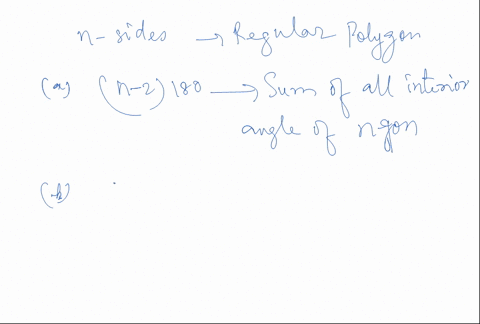 n-sides → Regular Polygon
(a) (n-2) 180 → Sum of all interior
angle of n gon
(b)